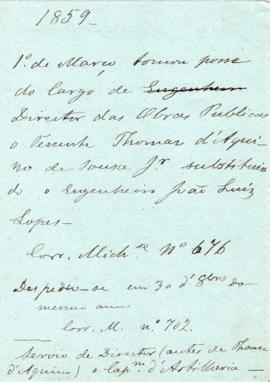 1859
1º de Março tomou posse
do largo de Engenheiro
Director das Obras Publicas
o Tenente Thomaz d'Aqui
no de Sousa Jr substituin
do o Engenheiro João Luiz
Lopes-
Corr. Mich.se Nº 676
Despediu-se em 30 d'9bro do
mesmo anno
Corr. M. nº 702.
Serviu de Director (antes de Thomaz
d'Aquino) o Capm d'Artilheria -